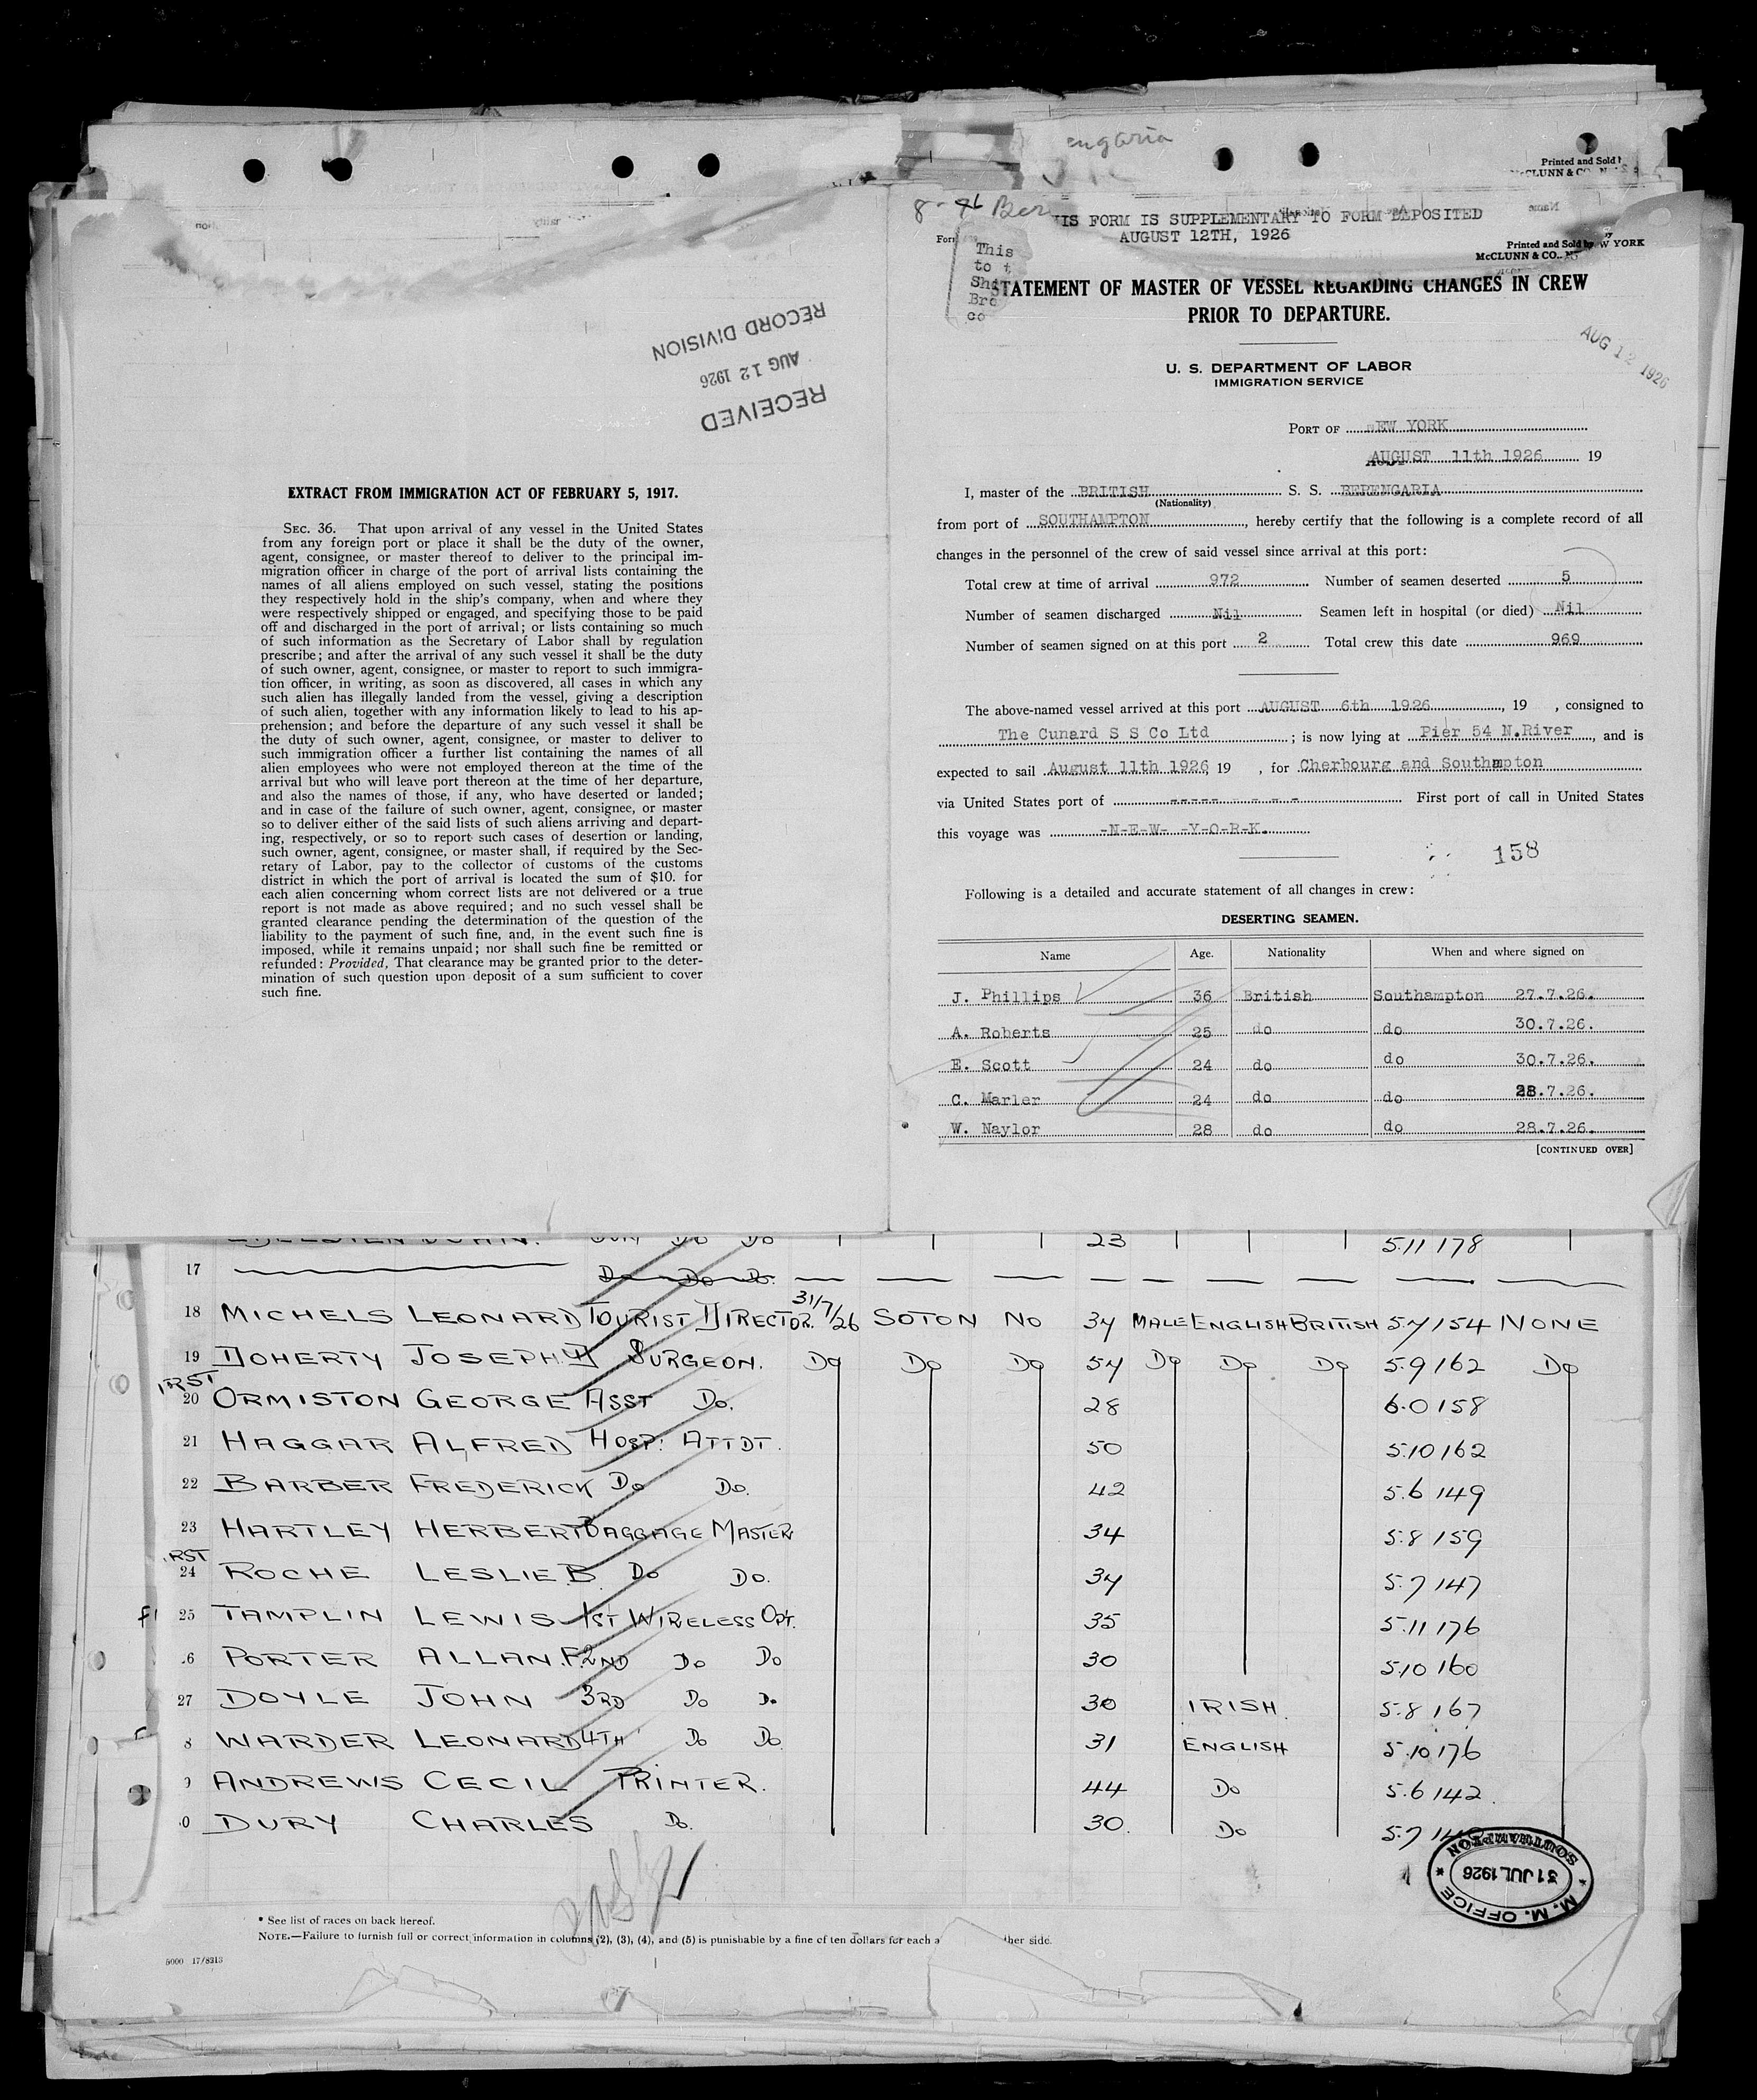 engaria
Printed and Sold
CLUNN & CO
8-96 Ber
IS FORM IS SUPPLEMENTARY TO FORM DEPOSITED
AUGUST 12TH, 1926
Printed and Sold by
W YORK
McCLUNN & CO.
This
to
Shi
Bro
co
STATEMENT OF MASTER OF VESSEL REGARDING CHANGES IN CREW
PRIOR TO DEPARTURE.
AUG 12 1926
U. S. DEPARTMENT OF LABOR
IMMIGRATION SERVICE
PORT OF NEW YORK
AUGUST 11th 1926 19
I, master of the BRITISH S. S. BERENGARIA
(Nationality)
from port of SOUTHAMPTON, hereby certify that the following is a complete record of all
changes in the personnel of the crew of said vessel since arrival at this port:
Total crew at time of arrival 972 Number of seamen deserted 5
Number of seamen discharged Nil Seamen left in hospital (or died) Nil
Number of seamen signed on at this port 2 Total crew this date 969
The above-named vessel arrived at this port AUGUST 6th 1926, 19 , consigned to
The Cunard S S Co Ltd ; is now lying at Pier 54 N.River, and is
expected to sail August 11th 1926 19 , for Cherbourg and Southmpton
via United States port of ----- - - - - First port of call in United States
this voyage was -N-E-W- -Y-O-R-K.
158
Following is a detailed and accurate statement of all changes in crew:
DESERTING SEAMEN.
Name Age. Nationality When and where signed on
J. Phillips 36 British Southampton 27.7.26.
A. Roberts 25 do do 30.7.26.
E. Scott 24 do do 30.7.26.
C. Marler 24 do do 28.7.26.
W. Naylor 28 do do 28.7.26.
[CONTINUED OVER]
RECEIVED
AUG 12 1926
RECORD DIVISION
EXTRACT FROM IMMIGRATION ACT OF FEBRUARY 5, 1917.
SEC. 36. That upon arrival of any vessel in the United States
from any foreign port or place it shall be the duty of the owner,
agent, consignee, or master thereof to deliver to the principal im-
migration officer in charge of the port of arrival lists containing the
names of all aliens employed on such vessel, stating the positions
they respectively hold in the ship's company, when and where they
were respectively shipped or engaged, and specifying those to be paid
off and discharged in the port of arrival; or lists containing so much
of such information as the Secretary of Labor shall by regulation
prescribe; and after the arrival of any such vessel it shall be the duty
of such owner, agent, consignee, or master to report to such immigra-
tion officer, in writing, as soon as discovered, all cases in which any
such alien has illegally landed from the vessel, giving a description
of such alien, together with any information likely to lead to his ap-
prehension; and before the departure of any such vessel it shall be
the duty of such owner, agent, consignee, or master to deliver to
such immigration officer a further list containing the names of all
alien employees who were not employed thereon at the time of the
arrival but who will leave port thereon at the time of her departure,
and also the names of those, if any, who have deserted or landed;
and in case of the failure of such owner, agent, consignee, or master
so to deliver either of the said lists of such aliens arriving and depart-
ing, respectively, or so to report such cases of desertion or landing,
such owner, agent, consignee, or master shall, if required by the Sec-
retary of Labor, pay to the collector of customs of the customs
district in which the port of arrival is located the sum of $10. for
each alien concerning whom correct lists are not delivered or a true
report is not made as above required; and no such vessel shall be
granted clearance pending the determination of the question of the
liability to the payment of such fine, and, in the event such fine is
imposed, while it remains unpaid; nor shall such fine be remitted or
refunded: Provided, That clearance may be granted prior to the deter-
mination of such question upon deposit of a sum sufficient to cover
such fine.
23 5.11 178
17 Do Do Do.
18 MICHELS LEONARD TOURIST DIRECTOR. 31/7/26 SOTON NO 34 MALE ENGLISH BRITISH 5.7 154 NONE
19 DOHERTY JOSEPH SURGEON. Do Do Do 54 Do Do Do 5.9 162 Do
IRST
20 ORMISTON GEORGE ASST Do. 28 6.0 158
21 HAGGAR ALFRED HOSP: ATTDT. 50 5.10 162
22 BARBER FREDERICK Do Do. 42 5.6 149
23 HARTLEY HERBERT BAGGAGE MASTER 34 5.8 159
RST
24 ROCHE LESLIE.B. Do Do. 34 5.7 147
25 TAMPLIN LEWIS 1ST WIRELESS OPT. 35 5.11 176
6 PORTER ALLAN.F. 2ND Do Do 30 5.10 160
27 DOYLE JOHN 3RD Do Do 30 IRISH. 5.8 167
8 WARDER LEONARD 4TH Do Do 31 ENGLISH 5.10 176
9 ANDREWS CECIL PRINTER. 44 Do 5.6 142.
0 DURY CHARLES Do. 30. Do 5.7
M. M. OFFICE
31 JUL 1926
SOUTHAMPTON
* See list of races on back hereof.
NOTE.—Failure to furnish full or correct information in columns (2), (3), (4), and (5) is punishable by a fine of ten dollars for each a ther side.
5000 17/8213